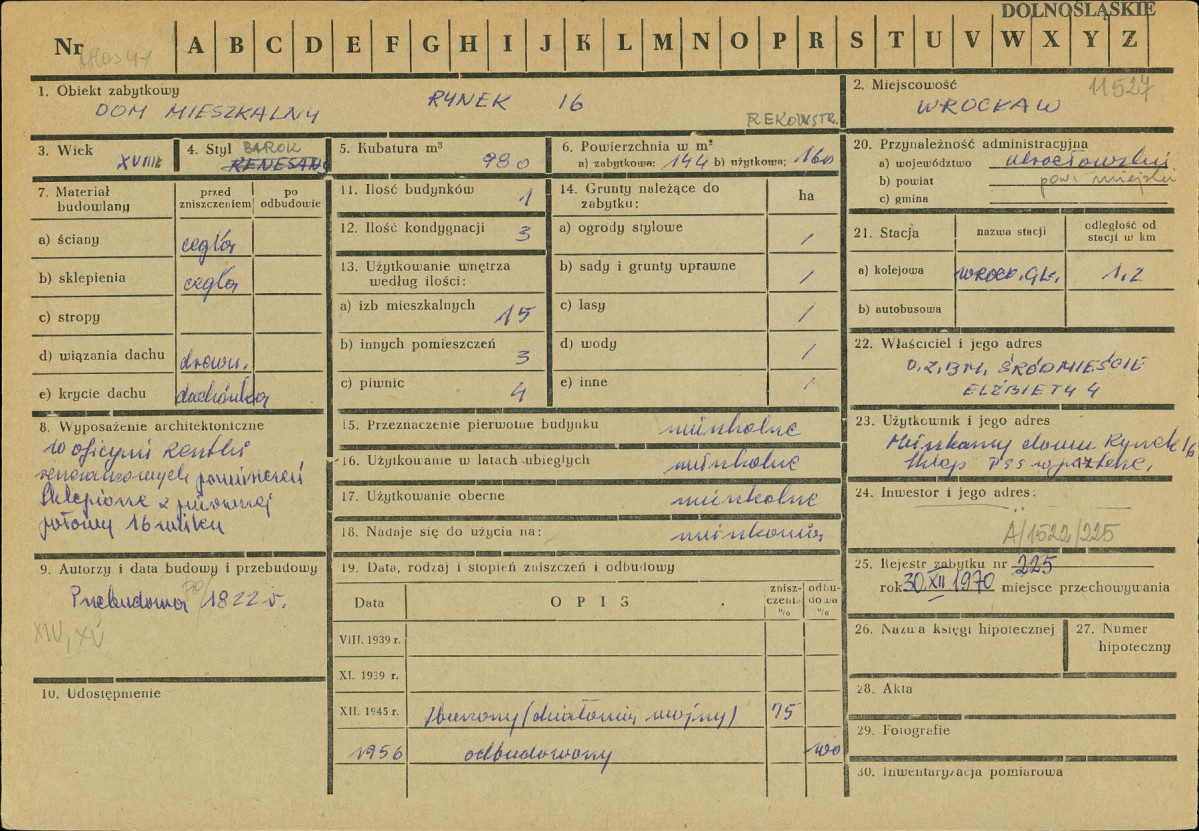 DOLNOŚLĄSKIE
Nr A B C D E F G H I J K L M N O P R S T U V W X Y Z
1. Obiekt zabytkowy
DOM MIESZKALNY RYNEK 16
REKONSTR.
2. Miejscowość 11527
WROCŁAW
3. Wiek
XVIII
4. Styl BAROK
RENESANS
5. Kubatura m³
980
6. Powierzchnia w m²
a) zabytkowa: 144 b) użytkowa: 160
7. Materiał budowlany
przed zniszczeniem
po odbudowie
a) ściany cegła
b) sklepienia cegła
c) stropy
d) wiązania dachu drewn.
e) krycie dachu dachówka
8. Wyposażenie architektoniczne
W oficynie resztki
renesansowych pomieszczeń
sklepione z pierwszej
połowy 16 wieku
9. Autorzy i data budowy i przebudowy
Przebudowa 1822 r.
XIV, XV
10. Udostępnienie
11. Ilość budynków 1
12. Ilość kondygnacji 3
13. Użytkowanie wnętrza
według ilości:
a) izb mieszkalnych 15
b) innych pomieszczeń 3
c) piwnic 4
14. Grunty należące do
zabytku:
ha
a) ogrody stylowe /
b) sady i grunty uprawne /
c) lasy /
d) wody /
e) inne /
15. Przeznaczenie pierwotne budynku mieszkalne
16. Użytkowanie w latach ubiegłych mieszkalne
17. Użytkowanie obecne mieszkalne
18. Nadaje się do użycia na: mieszkania
19. Data, rodzaj i stopień zniszczeń i odbudowy
Data
O P I S
zniszczenia %
odbudowa %
VIII. 1939 r.
XI. 1939 r.
XII. 1945 r. zburzony (działania wojny) 75
1956 odbudowany 100
20. Przynależność administracyjna
a) województwo wrocławskie
b) powiat pow. miejski
c) gmina
21. Stacja
nazwa stacji
odległość od
stacji w km
a) kolejowa Wrocł. Gł. 1,2
b) autobusowa
22. Właściciel i jego adres
D.Z.B.M. ŚRÓDMIEŚCIE
ELŻBIETY 4
23. Użytkownik i jego adres
Mieszkańcy domu Rynek 16
Sklep PSS w parterze.
24. Inwestor i jego adres:
A/1522/225
25. Rejestr zabytku nr 225
rok 30 XII 1970 miejsce przechowywania
26. Nazwa księgi hipotecznej
27. Numer
hipoteczny
28. Akta
29. Fotografie
30. Inwentaryzacja pomiarowa